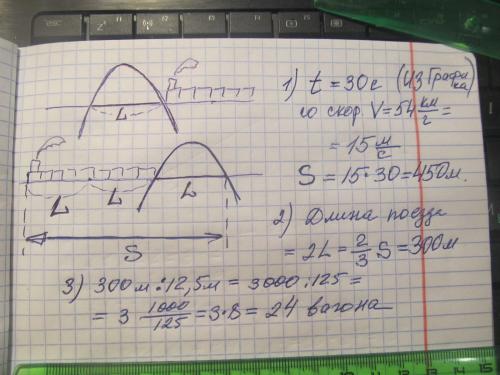 L
L
L
L
S
1) t = 30с (из Графи
ка)
со скор. V = 54 км/г =
= 15 м/с
S = 15·30 = 450м.
2) Длина поезда
= 2L = 2/3 S = 300м
3) 300м : 12,5м = 3000 : 125 =
= 3 · 1000/125 = 3·8 = 24 вагона